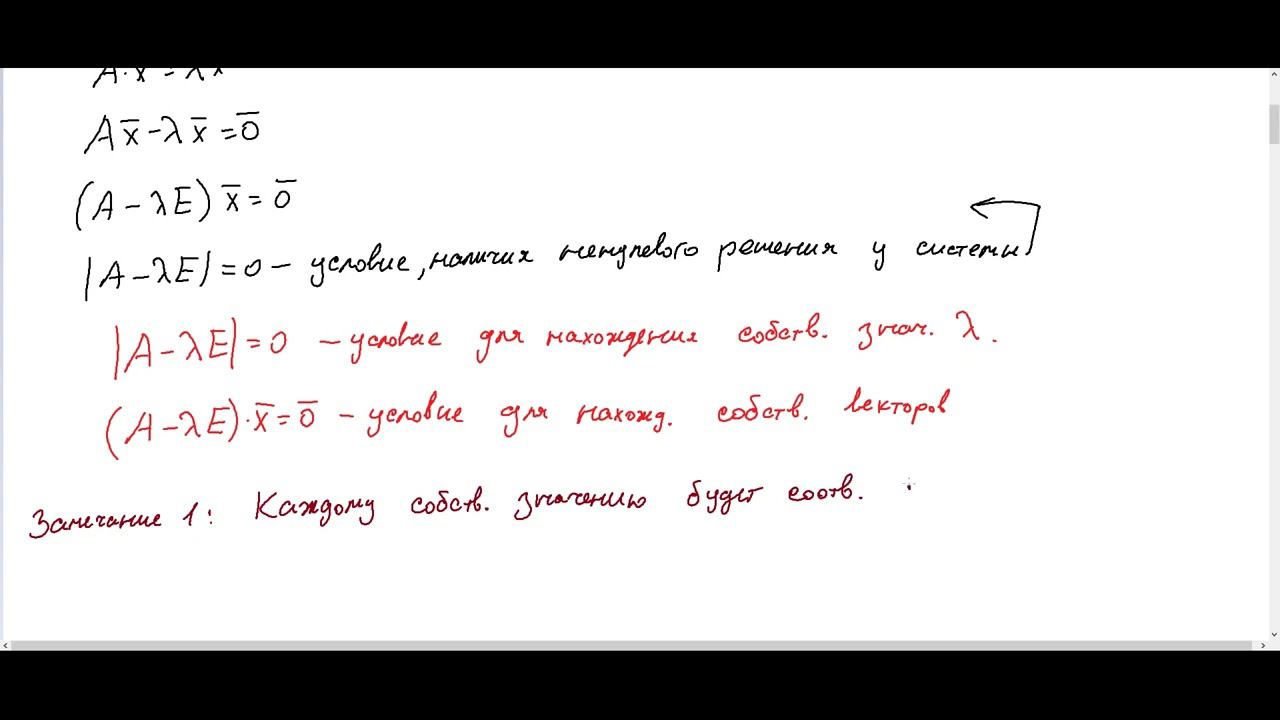 A·x̄ = λx̄
Ax̄ - λx̄ = 0̄
(A - λE) x̄ = 0̄
|A - λE| = 0 - условие, наличия ненулевого решения у системы
|A - λE| = 0 - условие для нахождения собств. знач. λ.
(A - λE)·x̄ = 0̄ - условие для нахожд. собств. векторов
Замечание 1: Каждому собств. значению будет соотв.